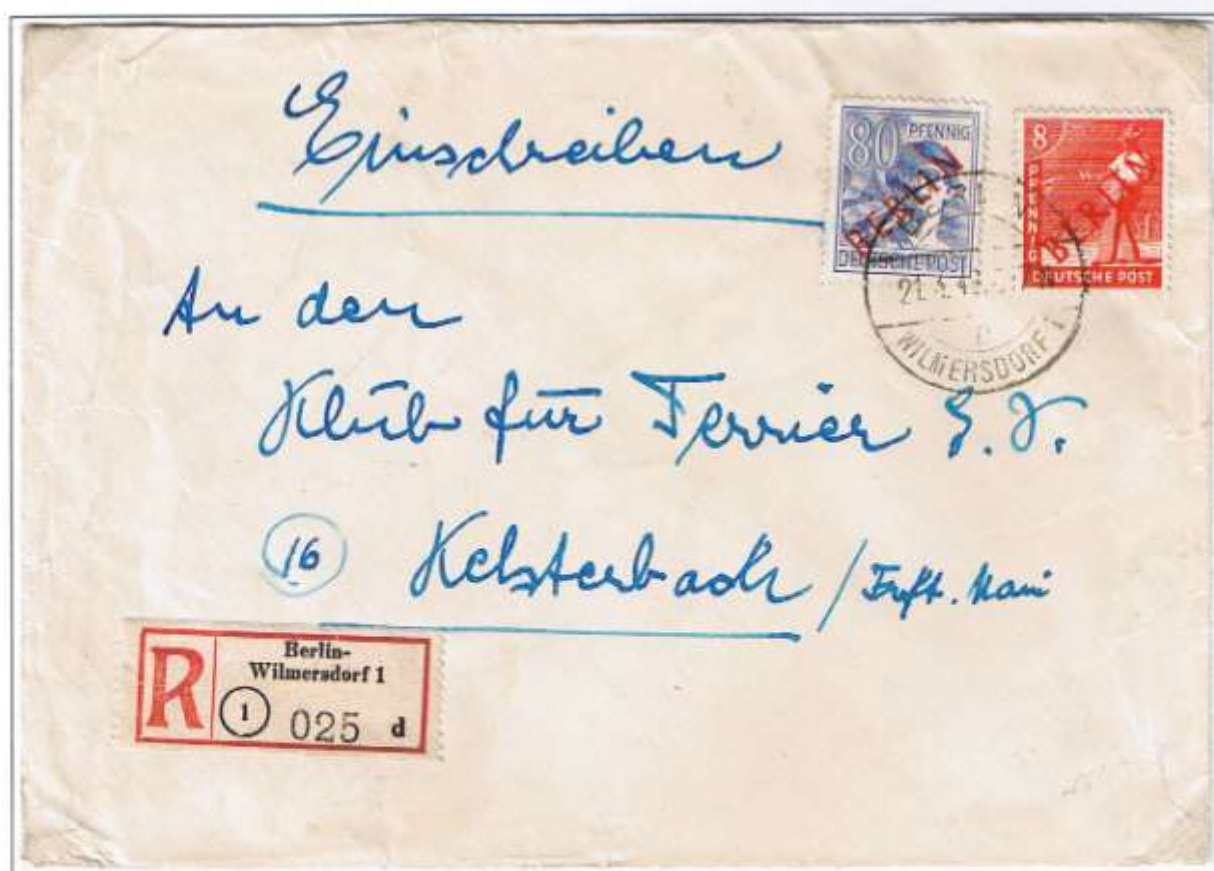 Einschreiben
80 PFENNIG
BERLIN
DEUTSCHE POST
8
PFENNIG
BERLIN
DEUTSCHE POST
WILMERSDORF 1
An den
Klub für Terrier E. V.
16 Kelsterbach / Frkft. Main
R Berlin-
Wilmersdorf 1
1 025 d